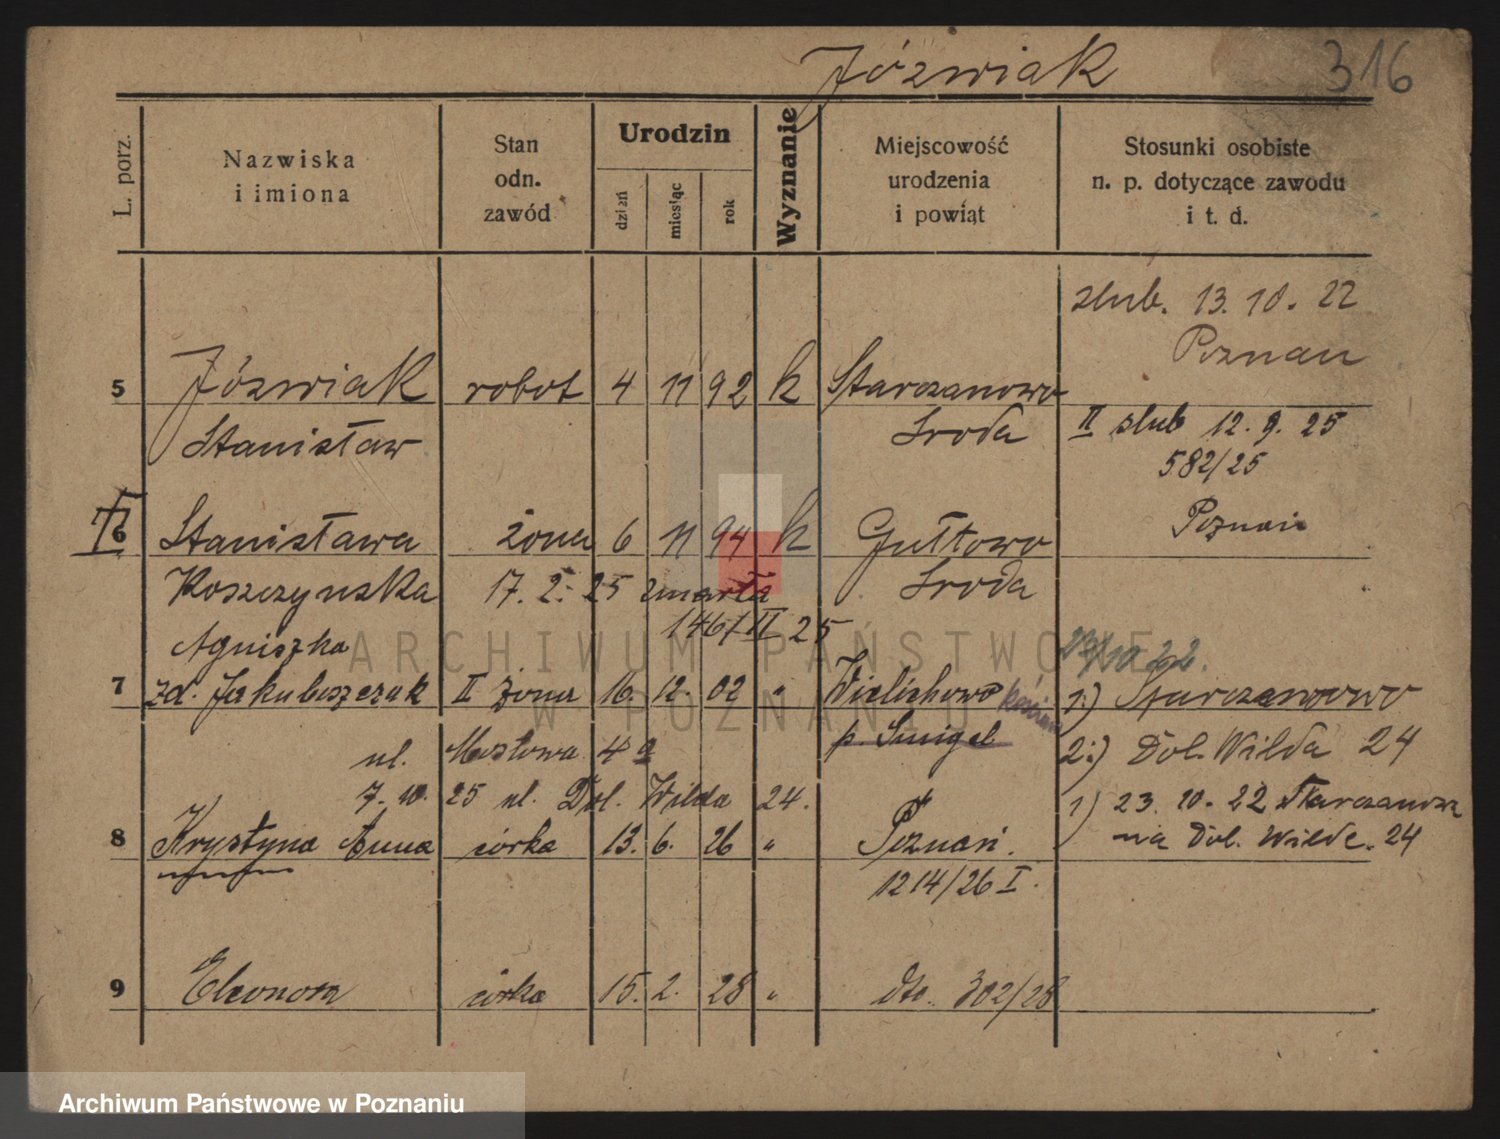 Józwiak
316
L. porz.
Nazwiska
i imiona
Stan
odn.
zawód
Urodzin
dzień
miesiąc
rok
Wyznanie
Miejscowość
urodzenia
i powiat
Stosunki osobiste
n. p. dotyczące zawodu
i t. d.
slub. 13. 10. 22
Poznan
5 Józwiak robot 4 11 92 k Starczanowo
Stanisław Sroda
II slub 12. 9. 25
582/25
Poznań
6 Stanisława żona 6 11 94 k Gułtowo
Koszczynska 17. 2. 25 zmarła Sroda
146/II 25
Agniszka
23/10 22.
7 zd. Jakubszczak II żona 16. 12. 02 " Wielichowo 1.) Starczanowo
p. Smigel
ul. Mostowa 4a 2.) Dol. Wilda 24
7. 10. 25 ul. Dol. Wilda 24. 1) 23. 10. 22 Starczanowa
8 Krystyna Anna córka 13. 6. 26 " Poznań. na Dol. Wilde. 24
1214/26 I.
9 Eleonora córka 15. 2. 28 " dto. 302/28
ARCHIWUM PAŃSTWOWE
W POZNANIU
Archiwum Państwowe w Poznaniu